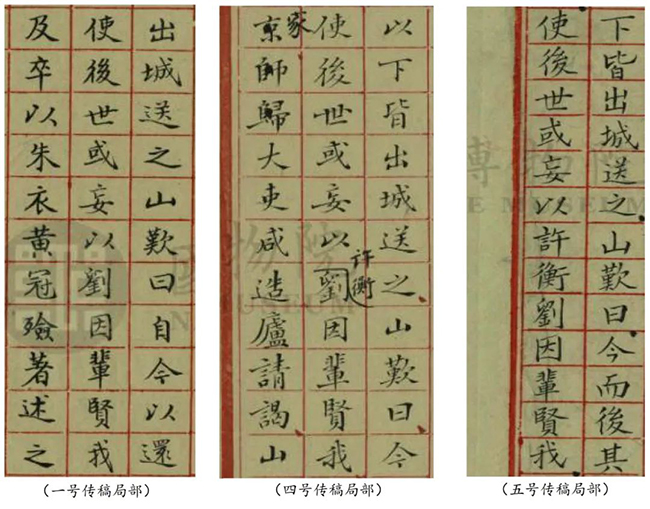 出城送之山歎曰自今以還
使後世或妄以劉因輩賢我
及卒以朱衣黃冠殮著述之
(一号传稿局部)
以下皆出城送之山歎曰今
使後世或妄以許衡劉因輩賢我
家京師歸大吏咸造廬請謁山
(四号传稿局部)
下皆出城送之山歎曰今而後其
使後世或妄以許衡劉因輩賢我
(五号传稿局部)
博物院
MUSEUM